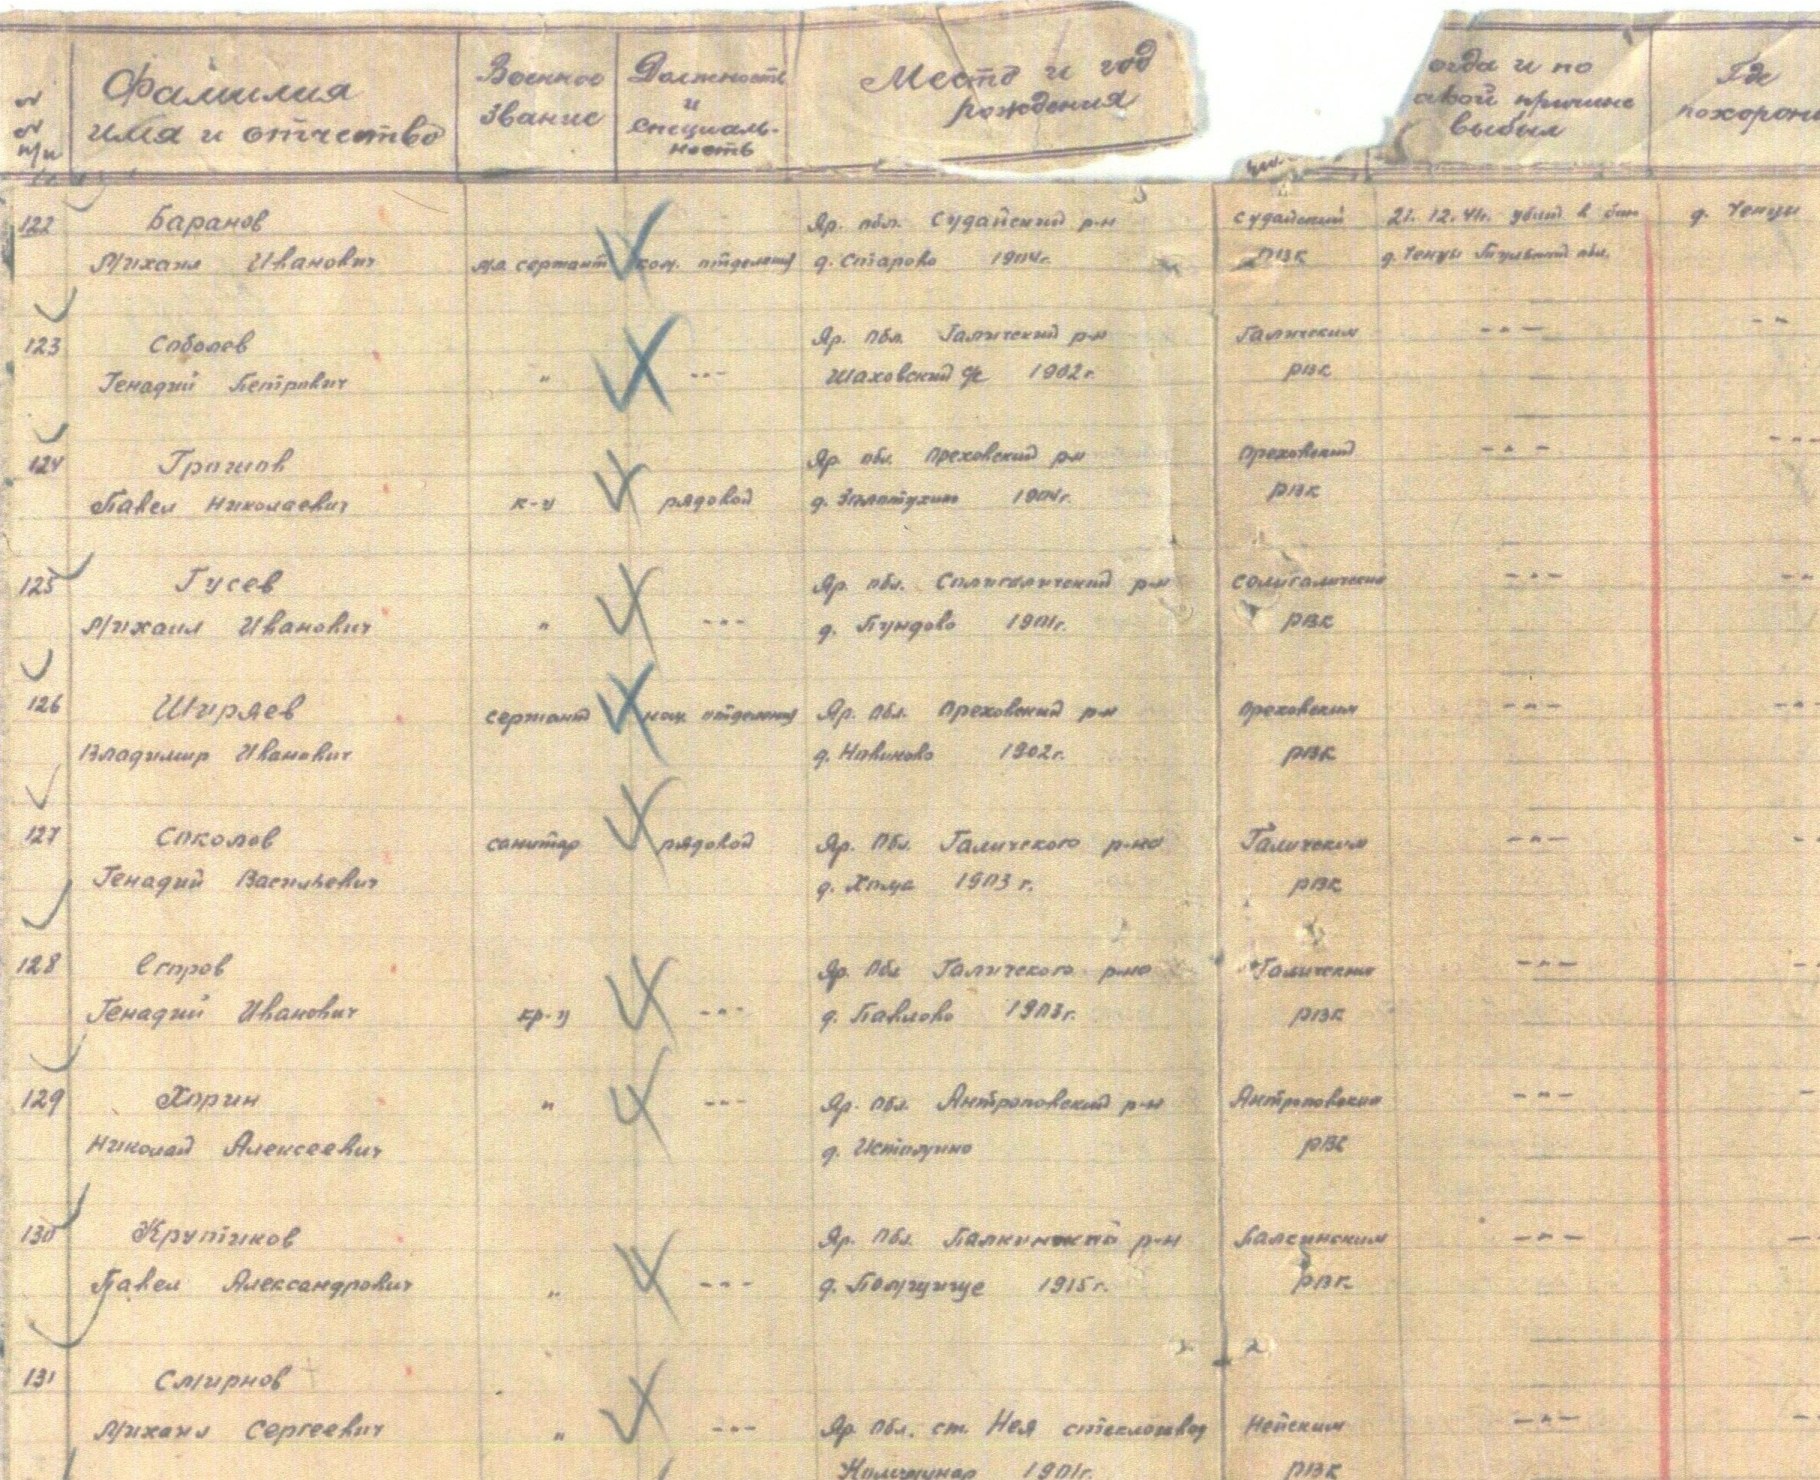 №№ п/п
Фамилия
имя и отчество
Военное
звание
Должность
и
специаль-
ность
Место и год
рождения
огда и по
акой причине
выбыл
Где
похорон
122 Баранов Яр. обл. Судайский р-н Судайский 21.12.41г. убит в бою д. Ченцы
Михаил Иванович мл. сержант ком. отделения д. Старово 1904г. РВК д. Ченцы Тульской обл.
123 Соболев Яр. обл. Галичский р-н Галичским -"- -"-
Генадий Петрович " -"- Шаховский с/с 1902г. РВК
124 Грошов Яр. обл. Ореховский р-н Ореховский -"- -"-
Павел Николаевич к-ц рядовой д. Золотухино 1904г. РВК
125 Гусев Яр. обл. Солигаличский р-н Солигаличским -"- -"-
Михаил Иванович " -"- д. Гундово 1901г. РВК
126 Ширяев сержант ком. отделения Яр. обл. Ореховский р-н Ореховским -"- -"-
Владимир Иванович д. Новиново 1902г. РВК
127 Соколов санитар рядовой Яр. обл. Галичского р-на Галичским -"- -
Генадий Васильевич д. Хома 1903г. РВК
128 Егоров Яр. обл. Галичского р-на Галичским -"- -
Генадий Иванович кр-ц -"- д. Павлово 1903г. РВК
129 Хорин " -"- Яр. обл. Антроповский р-н Антроповским -"- -
Николай Алексеевич д. РВК
130 Крупиков Яр. обл. р-н -"- -
Павел Александрович " -"- д. 1915г. РВК
131 Смирнов
Михаил Сергеевич " -"- Яр. обл. ст. Нея стеклозавод Нейским -"- -
Коммунар 1901г. РВК